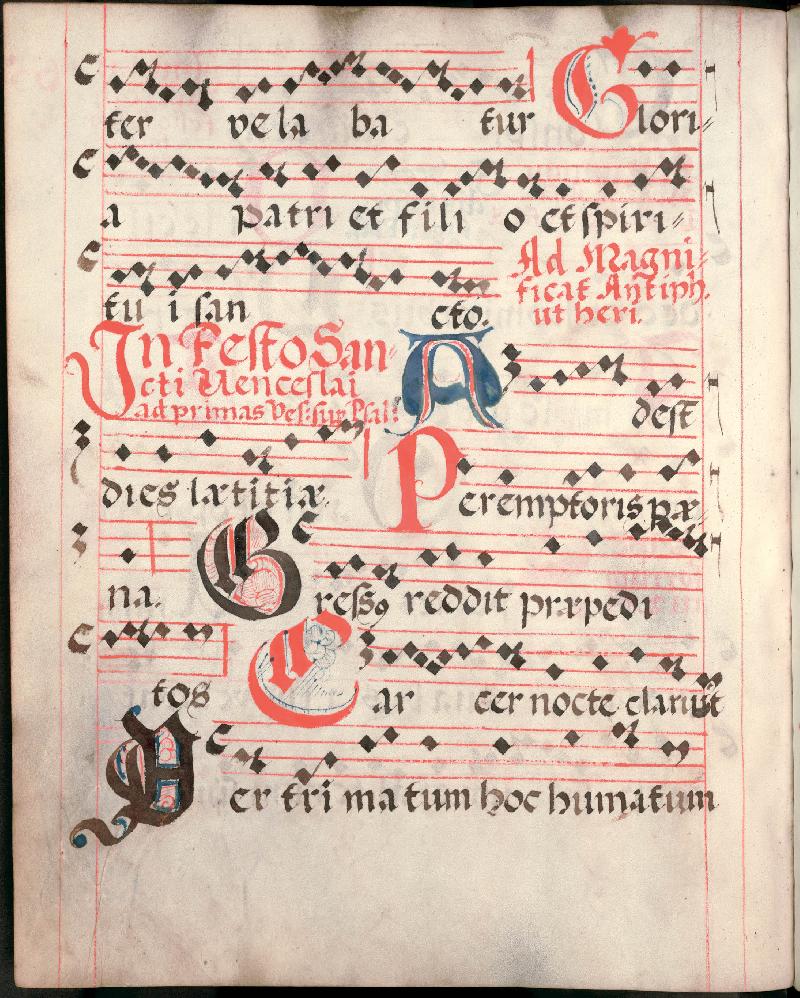 ter vela ba tur Glori-
a Patri et fili o et spiri-
tu i san cto.
Ad Magni-
ficat Antiph.
ut heri.
In Festo San-
cti Venceslai
ad primas Ves: sup Psal:
Adest
dies lætitiæ.
Peremptoris pæ-
na.
Gress9 reddit præpedi
tos
Carcer nocte claruit
Per tri ma tum hoc humatum